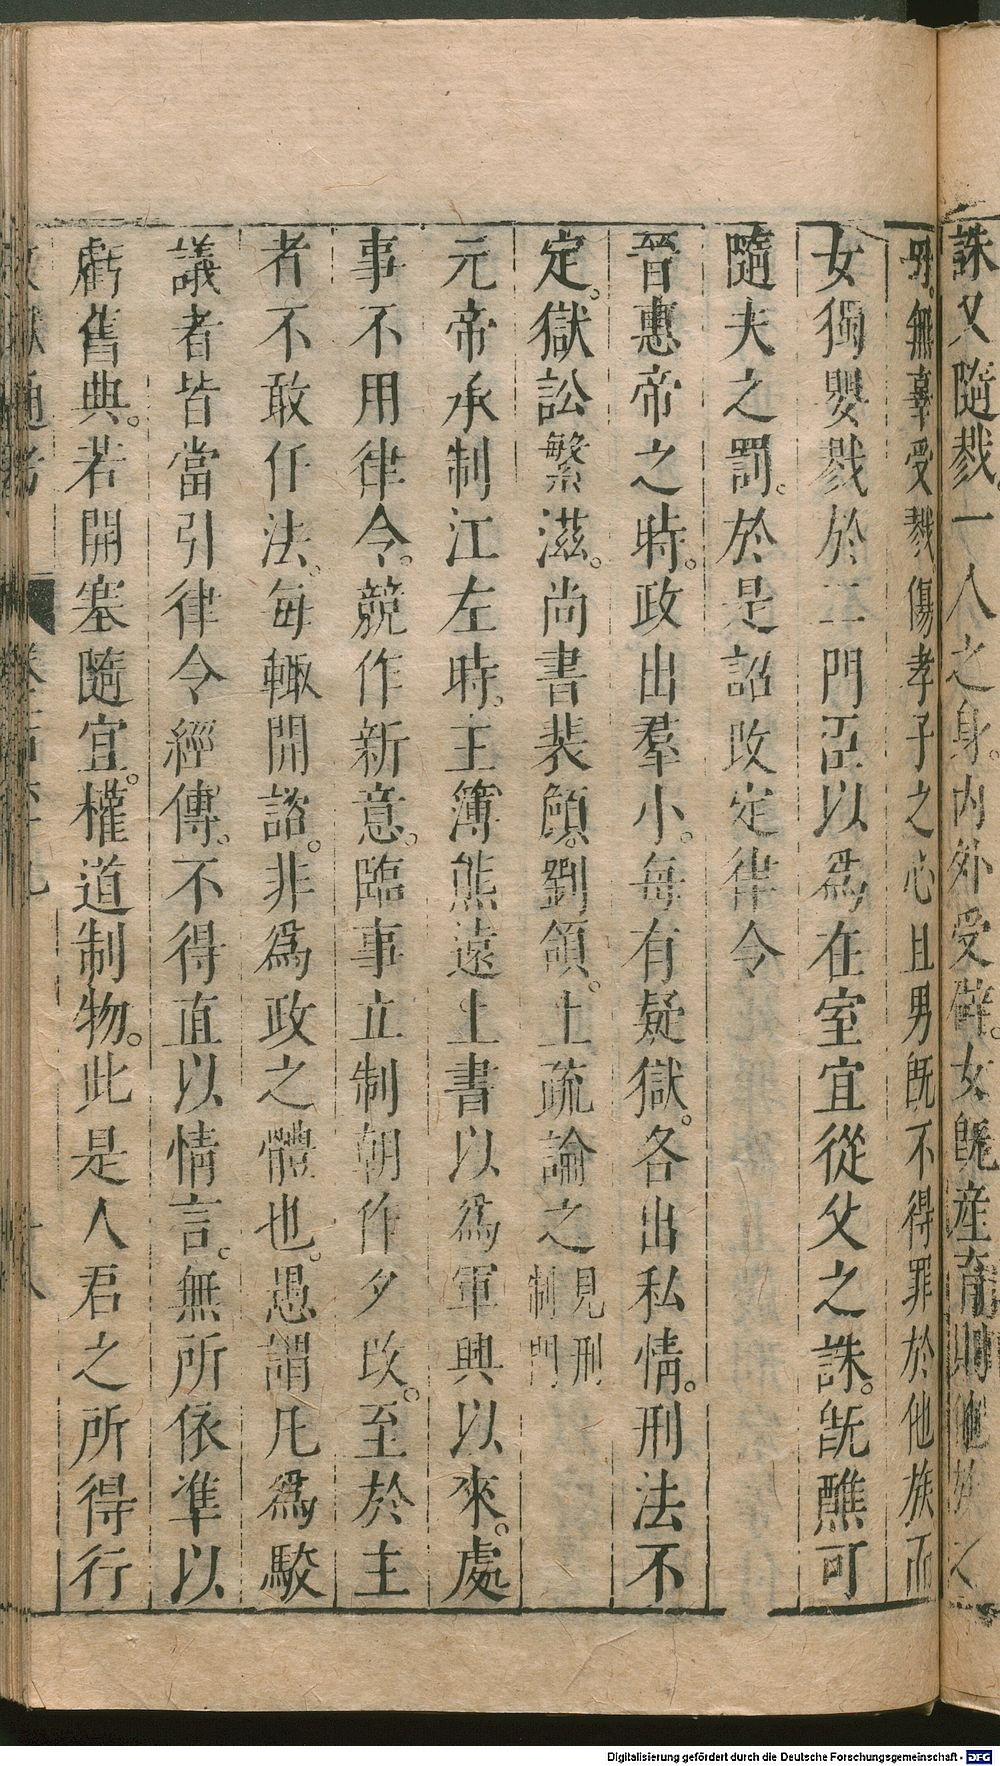 誅又隨戮。一人之身。內外受辟。女既産育則他族之
母。無辜受戮傷孝子之心且男既不得罪於他族而
女獨嬰戮於二門臣以為在室宜從父之誅。既醮可
隨夫之罰。於是詔改定律令
晉惠帝之時。政出羣小。每有疑獄。各出私情。刑法不
定。獄訟繁滋。尚書裴頠。劉頌。上疏論之見刑制門
元帝承制江左時。主簿熊遠上書以爲軍興以來。處
事不用律令。競作新意。臨事立制朝作夕改。至於主
者不敢任法。每輒開諮。非爲政之體也。愚謂凡爲駮
議者皆當引律令經傳。不得直以情言。無所依準以
虧舊典。若開塞隨宜。權道制物。此是人君之所得行
Digitalisierung gefördert durch die Deutsche Forschungsgemeinschaft - DFG